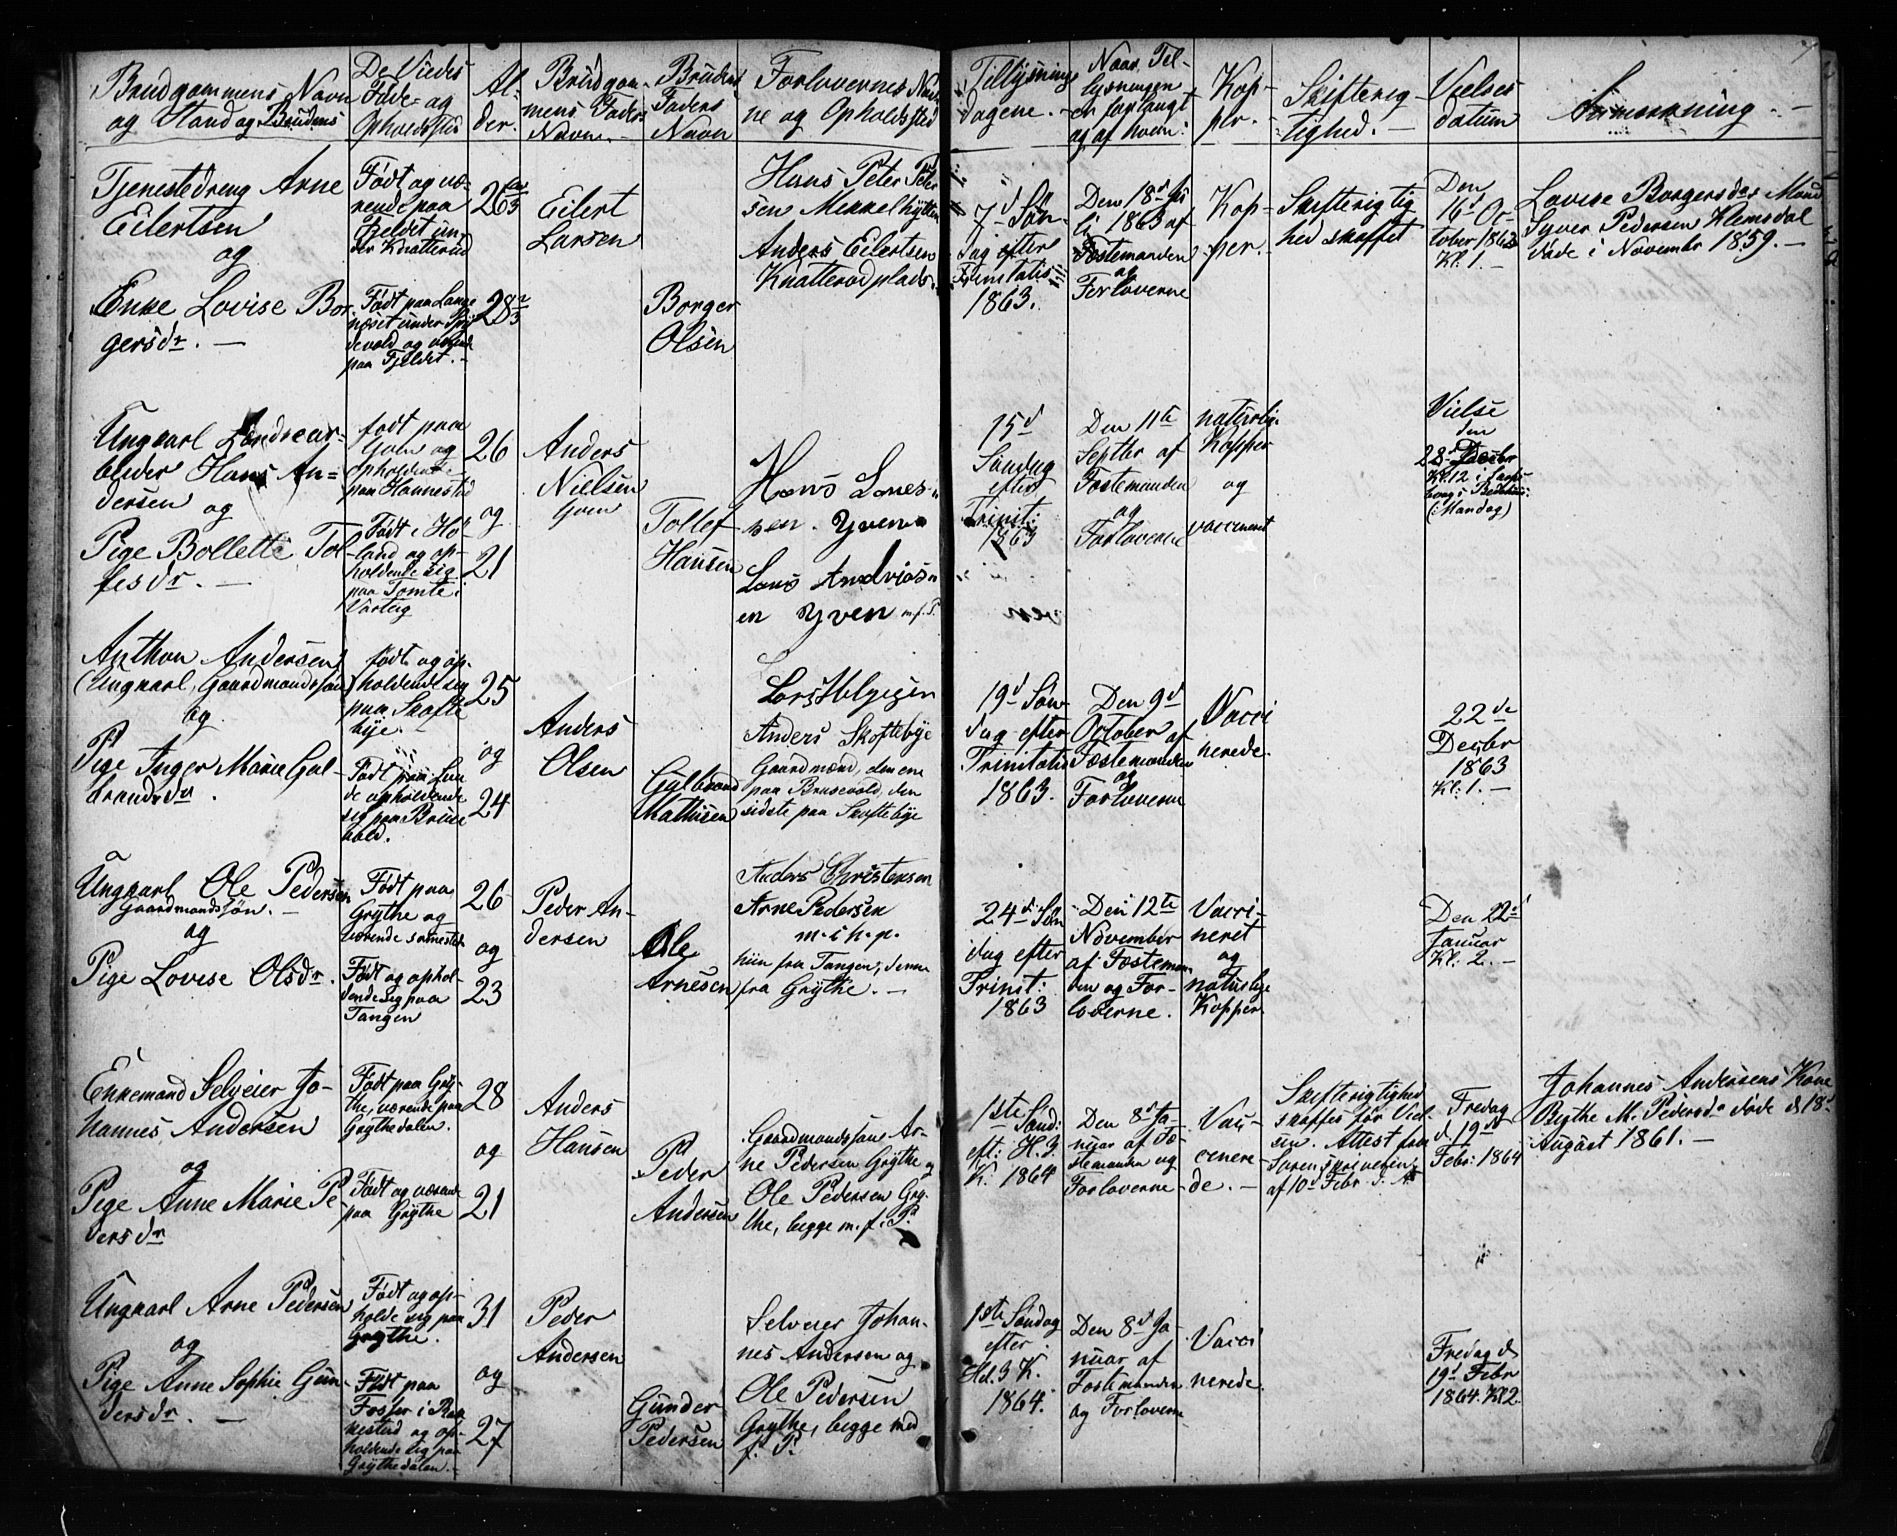 Brudgommens Navn
og Stand og Brudens
De Viedes
Føde- og
Opholdssted
Al-
der.
Brudgom-
mens Faders
Navn.
Brudens
Faders
Navn
Forlovernes Nav-
ne og Opholdssted
Tillysnings
dagene.
Naar Til-
lysningen
er forlangt
og af hvem.
Kop-
per.
Skifterig-
tighed.
Vielses
datum
Anmærkning.
Tjenestedreng Arne
Eilertsen
og
Enke Lovise Bor-
gersdr.
Født og væ-
rende paa
Fjeldet un-
der Knatterud
Født paa Lange
næset under
og værende
paa Fjeldet.
26
28
Eilert
Larsen
Borger
Olsen
Hans Peter Peter
sen Mikkelhytten
Anders Eilertsen
Knatterødplads.
7d Søn-
dag efter
Trinitatis
1863.
Den 18d Ju
li 1863 af
Fæstemanden
og
Forloverne
Kop-
per.
Skifterigtig
hed skaffet
Den
16d Oc-
tober 1863
Kl. 1.
Lovise Borgersdrs Mand
Syver Pedersen Klemsdal
døde i Novembr 1859.
Ungkarl Landvear-
beider Hans An-
dersen og
Pige Bollette Tol-
lesdr.
født paa
og
Opholdende
paa Hannestad
Født i Ho-
land og op-
holdende sig
paa Tomte i
Varteig
26
og
21
Anders
Nielsen
Tollef
Hansen
Hans Lares-
sen. Yven
Lars Andrias
en Yven m.f.P.
15d
Søndag
efter
Trinit:
1863
Den 11te
Septbr af
Fæstemanden
og
Forloverne
naturlige
Kopper
og
vaccineret
Vielse
den
28d Decbr
Kl. 12 i
(Mandag)
Anthon Andersen
(Ungkarl, Gaardmandssøn)
og
Pige Inger Marie Gul
brandsdr.
født og op-
holdende sig
paa Skofte
bye.
Født paa Lun
de opholdende
sig paa Bruse
vold.
25
og
24
Anders
Olsen
Gulbrand
Mathisen
Lars Helgesen
Anders Skoftebye
Gaardmænd, den ene
paa Brusevold, den
sidste paa Skoftebye
19d Søn-
dag efter
Trinitatis
1863.
Den 9d
October af
Fæstemanden
og
Forloverne
Vacci
nerede.
22de
Decbr
1863
Kl: 1.
Ungkarl Ole Pedersen
Gaardmandssøn.
og
Pige Lovise Olsdr.
Født paa
Grythe og
værende sammested
Født og ophol-
dende sig paa
Tangen
26
og
23
Peder An-
dersen
Ole
Arnesen
Anders Christensen
Arne Pedersen
m. i h. p.
hiin fra Tangen, denne
fra Grythe.
24d Søn
dag efter
Trinit:
1863
Den 12te
November
af Fæstemand-
en og For-
loverne.
Vacci-
neret
og
naturlige
Kopper
Den 22d
Januar
Kl: 2.
Enkemand Selveier Jo-
hannes Andersen
og
Pige Anne Marie Pe-
dersdr
Født paa Gry-
the, værende paa
Grythedalen.
Født og værende
paa Grythe
28
og
21
Anders
Hansen
Peder
Andersen
Gaardmandssøn Ar-
ne Pedersen Grythe og
Ole Pedersen Gry-
the, begge m. f. P.
1ste Sønd:
eft: H. 3
K. 1864
Den 8d Ja-
nuar af Fæ-
stemanden og
Forloverne
Vacc-
cinere-
de.
Skifterigtighed
skaffes før Viel-
sen. Attest fra
Sorenskriveren
af 10d Febr d. A
Fredag
d 19d
Febr: 1864
Johannes Andersens Kone
Birthe M. Pedersdr døde d 18d
August 1861.
Ungkarl Arne Pedersen
og
Pige Anne Sophie Gun-
dersdr.
Født og op-
holde sig paa
Grythe.
Født paa
Fosser i Rak
kestad og op-
holdende sig paa
Grythedalen.
31
og
27
Peder
Andersen
Gunder
Pedersen
Selveier Johan-
nes Andersen og
Ole Pedersen
Grythe, begge med
f. P.
1ste Søndag
efter
Hel. 3 K.
1864.
Den 8d Ja-
nuar af
Fæstemanden
og Forloverne
Vacci
nerede.
Fredag d
19d Febr
1864. Kl 2.